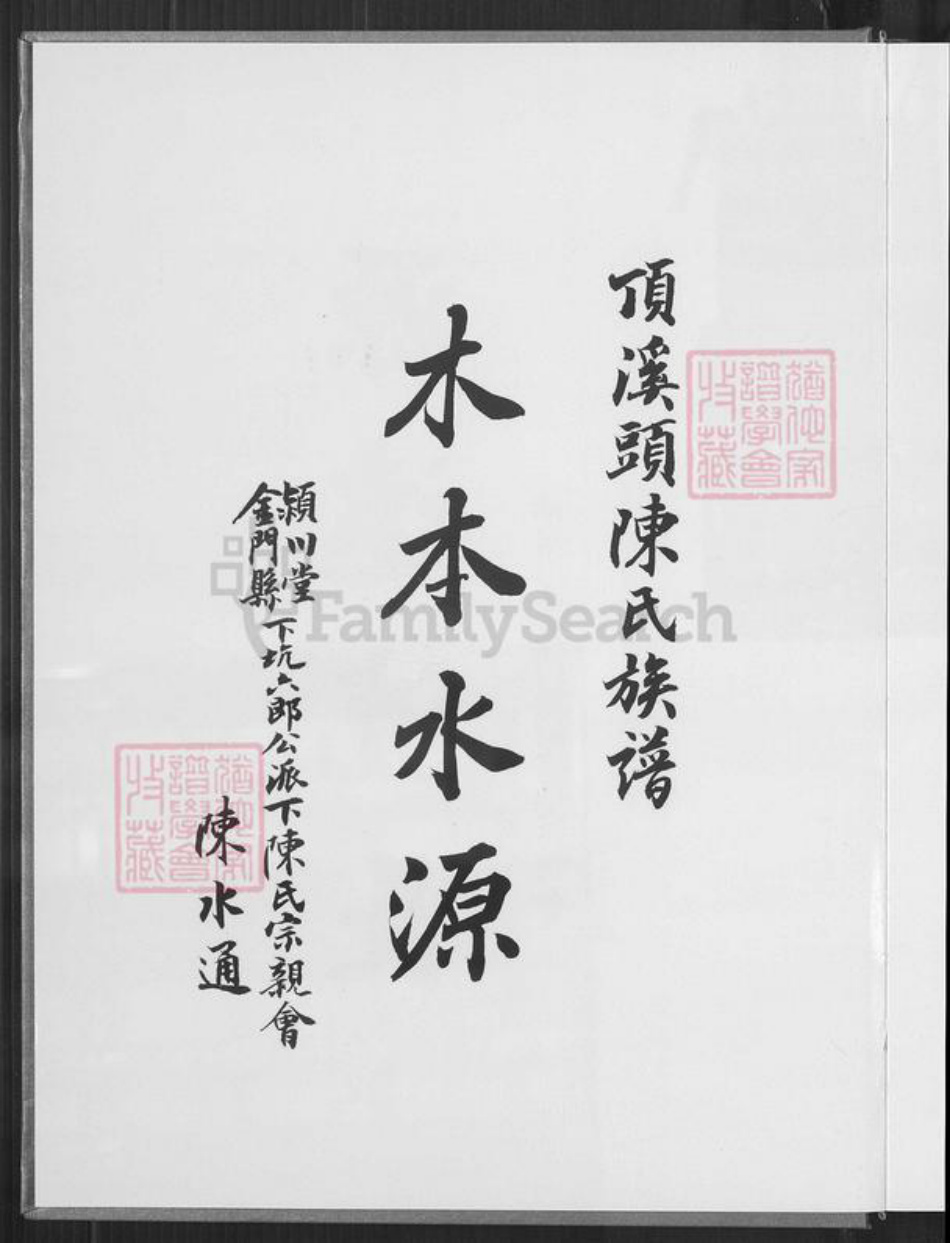 頂溪頭陳氏族譜
木本水源
潁川堂
金門縣
下坑六郎公派下陳氏宗親會
陳水通
猶他家譜學會收藏
猶他家譜學會收藏
FamilySearch